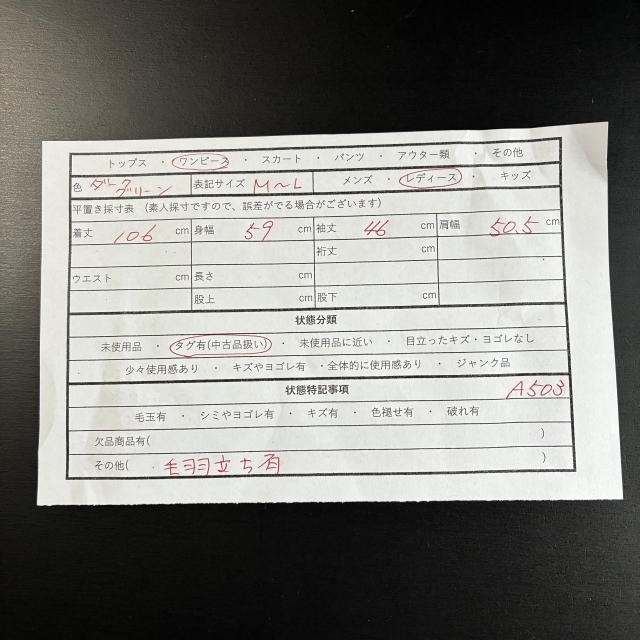 トップス ・ ワンピース ・ スカート ・ パンツ ・ アウター類 ・ その他
色 ダークグリーン 表記サイズ M〜L メンズ ・ レディース ・ キッズ
平置き採寸表 （素人採寸ですので、誤差がでる場合がございます）
着丈 106 cm 身幅 59 cm 袖丈 46 cm 肩幅 50.5 cm
裄丈 cm
ウエスト cm 長さ cm
股上 cm 股下 cm
状態分類
未使用品 ・ タグ有(中古品扱い) ・ 未使用品に近い ・ 目立ったキズ・ヨゴレなし
・ 少々使用感あり ・ キズやヨゴレ有 ・全体的に使用感あり ・ ジャンク品
状態特記事項 A503
毛玉有 ・ シミやヨゴレ有 ・ キズ有 ・ 色褪せ有 ・ 破れ有
欠品商品有( )
その他( 毛羽立ち有 )